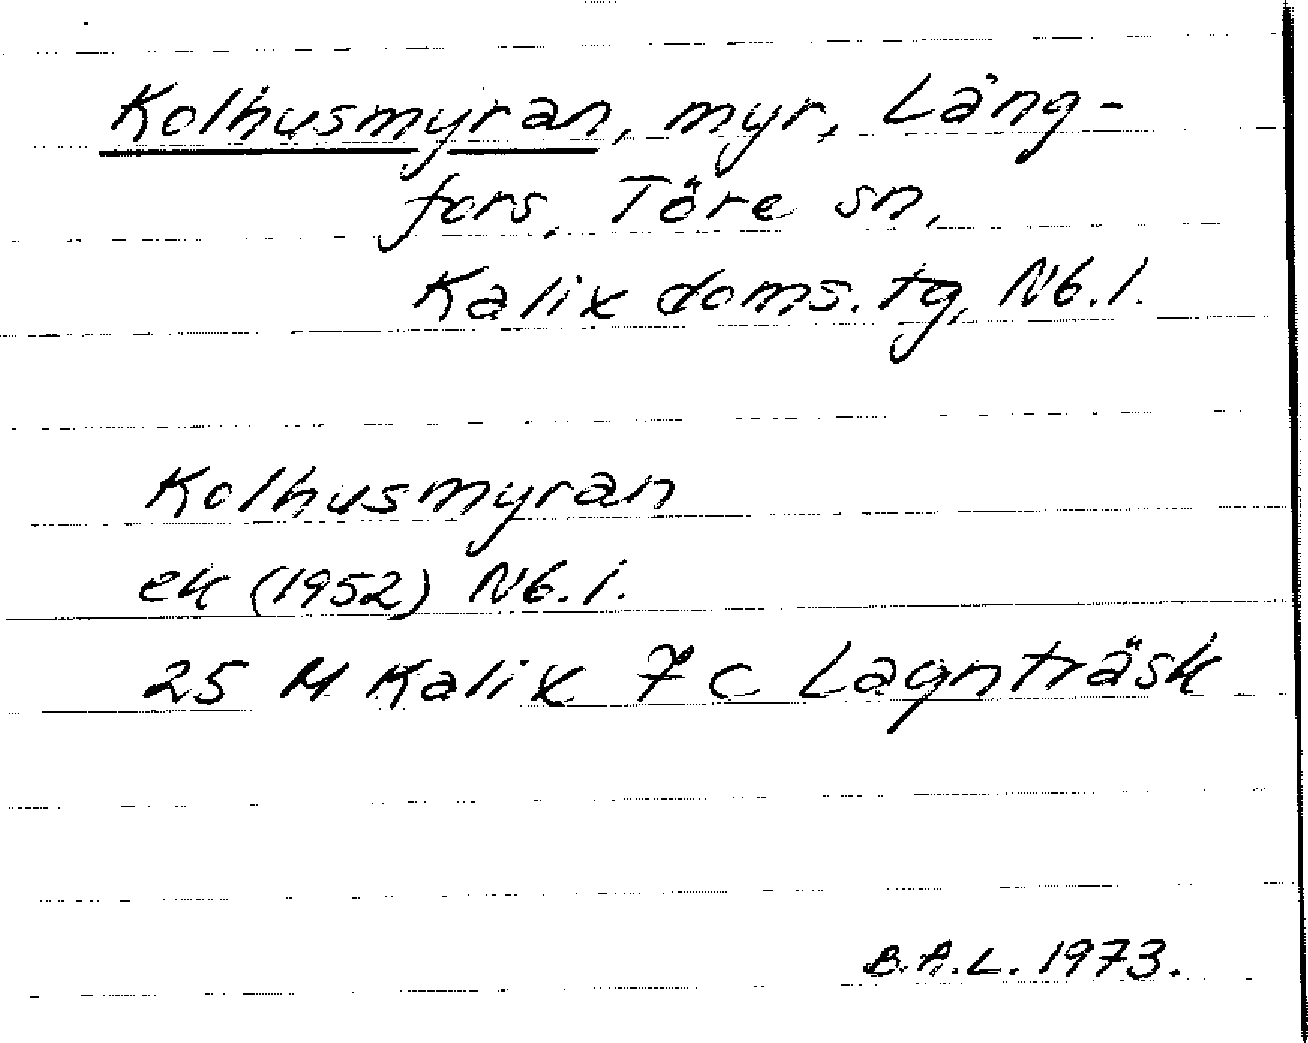 Kolhusmyran, myr, Lång-
fors, Töre sn,
Kalix doms. tg, Nb. l.
Kolhusmyran
ek (1952) Nb. l.
25 M Kalix 7 c Lagnträsk
B.A.L. 1973.